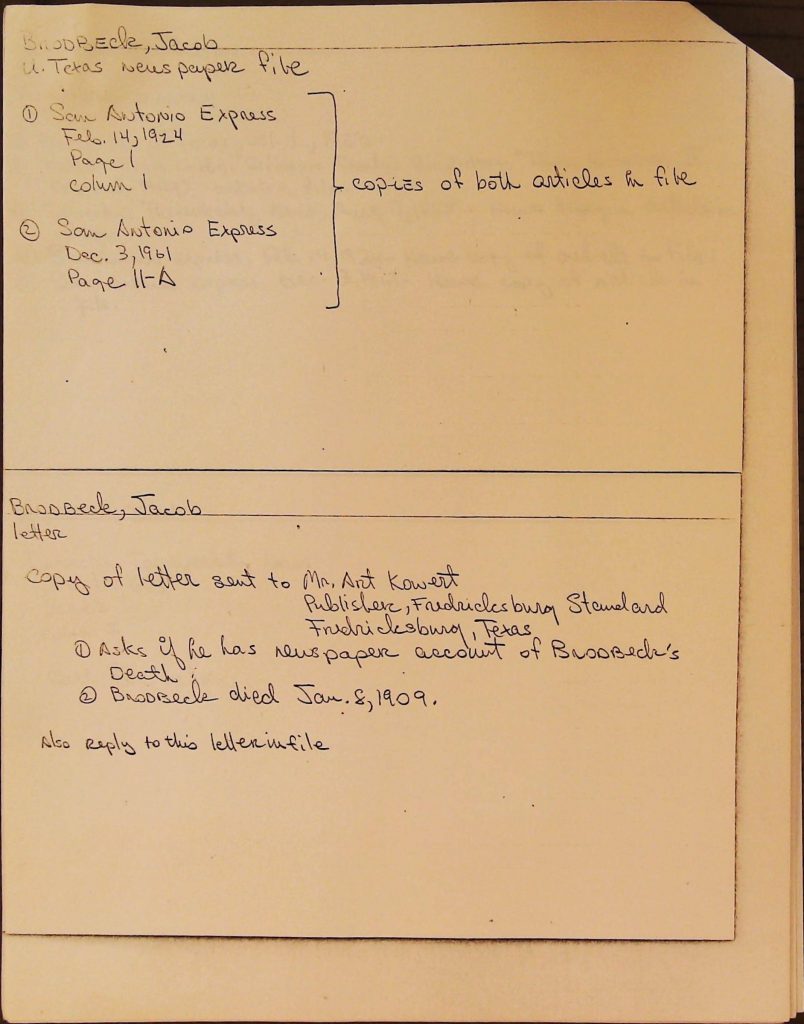 BRODBECK, Jacob
U. Texas Newspaper file
① San Antonio Express
Feb. 14, 1924
Page 1
column 1
copies of both articles in file
② San Antonio Express
Dec. 3, 1961
Page 11-A
BRODBECK, Jacob
letter
Copy of letter sent to Mr. Art Kowert
Publisher, Fredricksburg Standard
Fredricksburg, Texas
① Asks if he has newspaper account of BRODBECK's
Death.
② BRODBECK died Jan. 8, 1909.
Also reply to this letter in file